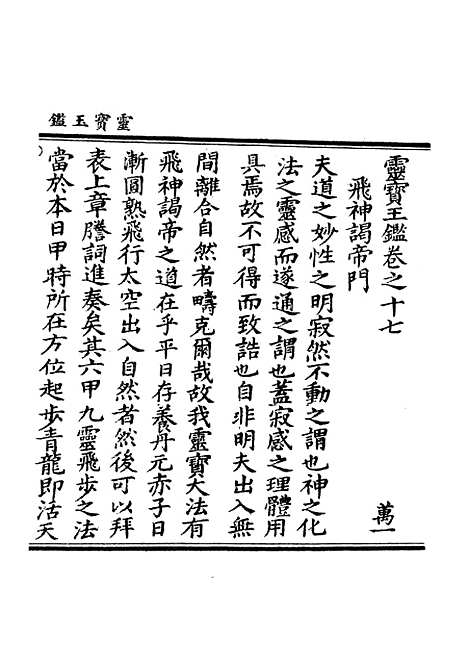 靈寶玉鑑
靈寶玉鑑卷之十七
萬一
飛神謁帝門
夫道之妙性之明寂然不動之謂也神之化
法之靈感而遂通之謂也蓋寂感之理體用
具焉故不可得而致詰也自非明夫出入無
間離合自然者疇克爾哉故我靈寶大法有
飛神謁帝之道在乎平日存養丹元赤子日
漸圓熟飛行太空出入自然者然後可以拜
表上章謄詞進奏矣其六甲九靈飛步之法
當於本日甲時所在方位起步青龍即活天